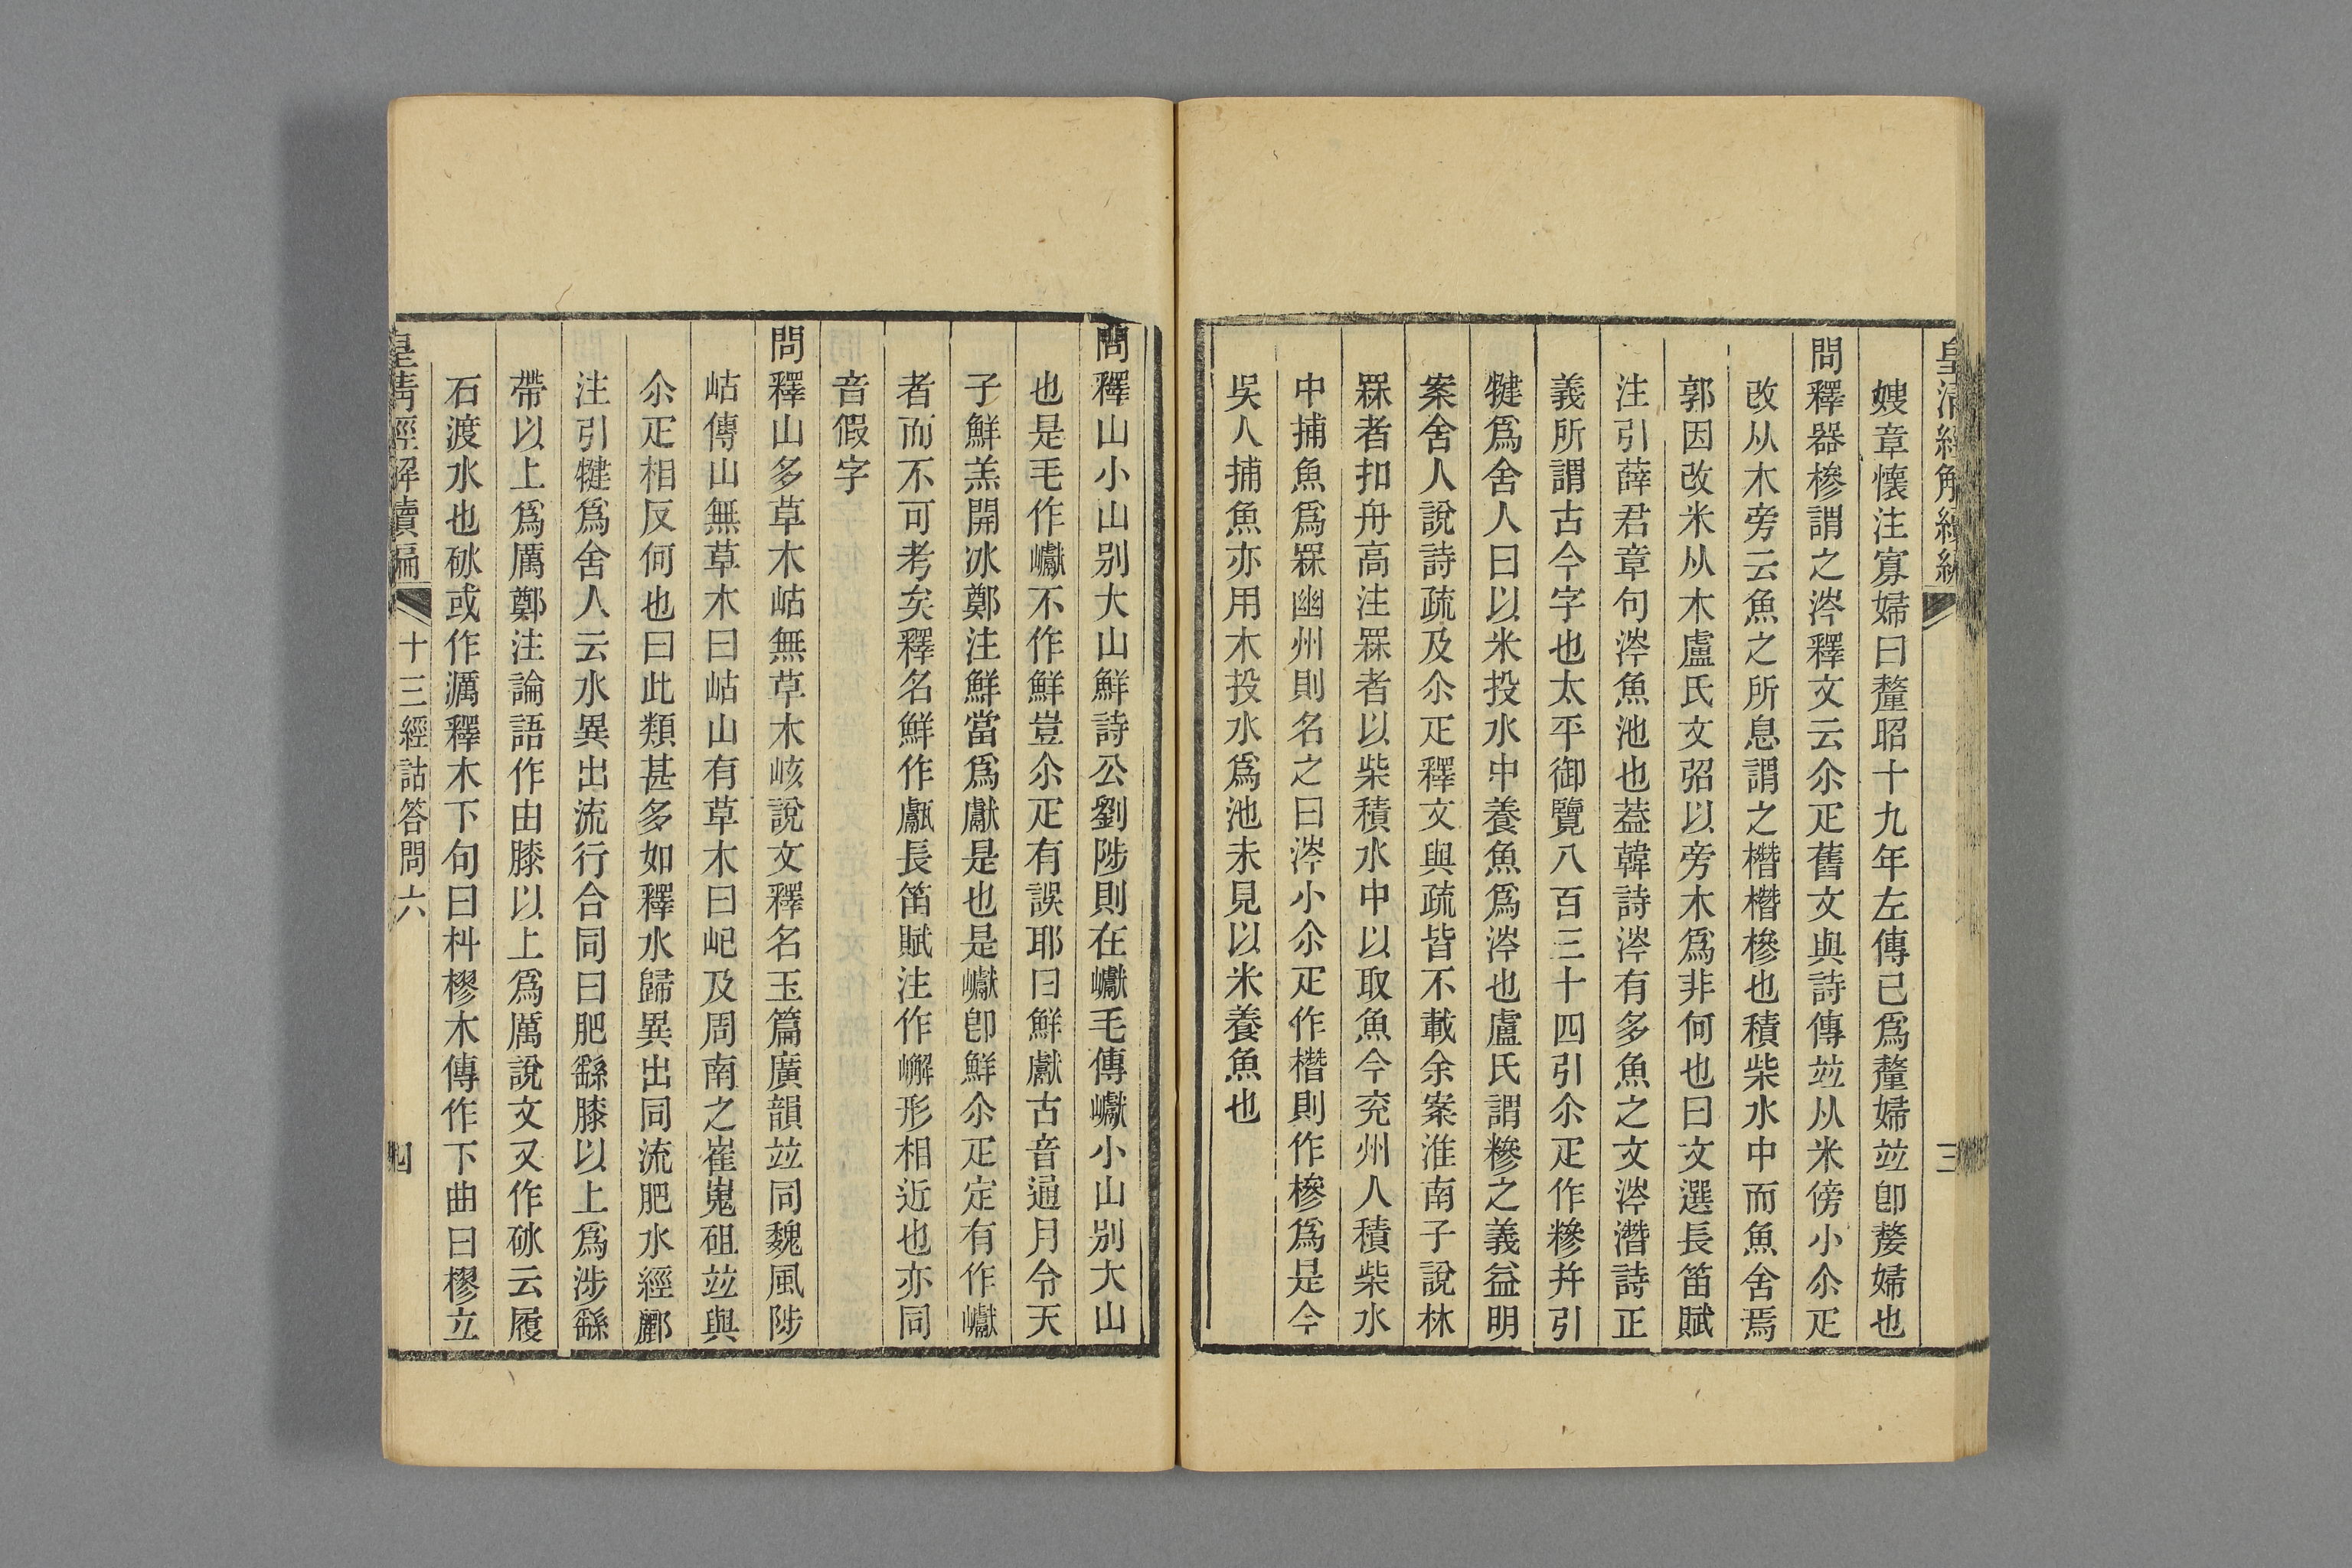 皇清經解續編 三
嫂章懷注寡婦曰釐昭十九年左傳已爲釐婦竝卽嫠婦也
問釋器槮謂之涔釋文云尒疋舊文與詩傳竝从米傍小尒疋
改从木旁云魚之所息謂之橬橬槮也積柴水中而魚舍焉
郭因改米从木盧氏文弨以旁木爲非何也曰文選長笛賦
注引薛君章句涔魚池也葢韓詩涔有多魚之文涔潛詩正
義所謂古今字也太平御覽八百三十四引尒疋作糝幷引
犍爲舍人曰以米投水中養魚爲涔也盧氏謂糝之義益明
案舍人說詩疏及尒疋釋文與疏皆不載余案淮南子說林
罧者扣舟高注罧者以柴積水中以取魚今兖州人積柴水
中捕魚爲罧幽州則名之曰涔小尒疋作橬則作槮爲是今
吳人捕魚亦用木投水爲池未見以米養魚也
問釋山小山別大山鮮詩公劉陟則在巘毛傳巘小山別大山
也是毛作巘不作鮮豈尒疋有誤耶曰鮮獻古音通月令天
子鮮羔開冰鄭注鮮當爲獻是也是巘卽鮮尒疋定有作巘
者而不可考矣釋名鮮作甗長笛賦注作嶰形相近也亦同
音假字
問釋山多草木岵無草木峐說文釋名玉篇廣韻竝同魏風陟
岵傳山無草木曰岵山有草木曰屺及周南之崔嵬砠竝與
尒疋相反何也曰此類甚多如釋水歸異出同流肥水經酈
注引犍爲舍人云水異出流行合同曰肥繇膝以上爲涉繇
帶以上爲厲鄭注論語作由膝以上爲厲說文又作砅云履
石渡水也砅或作濿釋木下句曰朻樛木傳作下曲曰樛立
皇清經解續編 十三經詁答問六 四